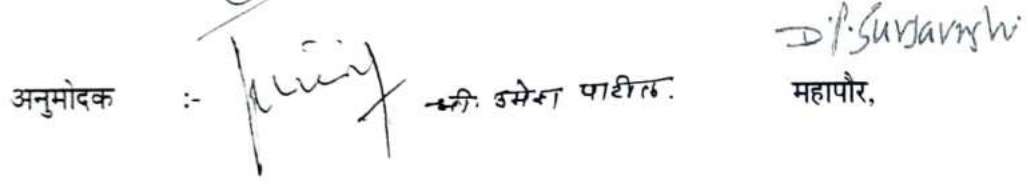 D.P. Suryavnshi
अनुमोदक :- श्री. उमेश पाटील. महापौर,